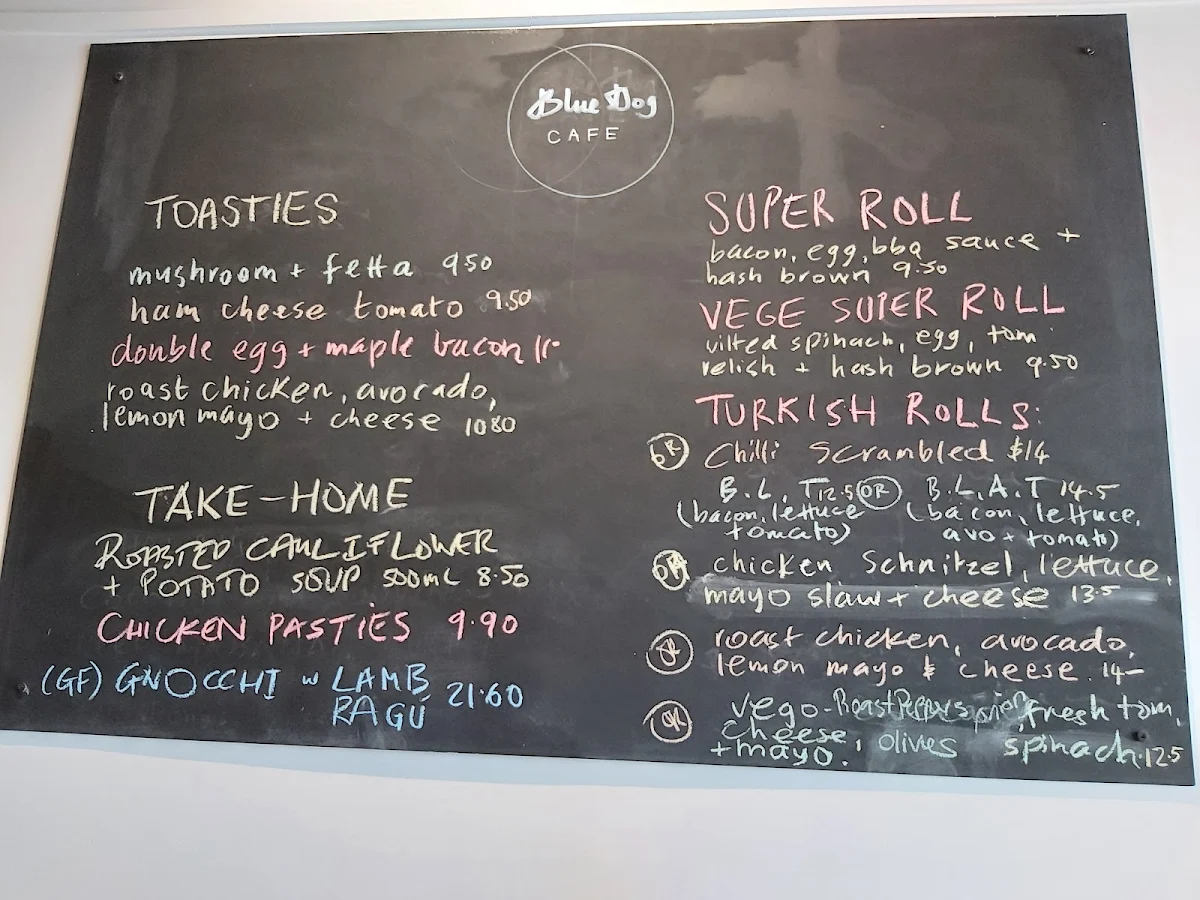 Blue Dog
CAFE
TOASTIES
mushroom + fetta 950
ham cheese tomato 9.50
double egg + maple bacon 11-
roast chicken, avocado,
lemon mayo + cheese 1080
TAKE-HOME
ROASTED CAULIFLOWER
+ POTATO SOUP 500mL 8.50
CHICKEN PASTIES 9.90
(GF) GNOCCHI w LAMB
RAGU 21.60
SUPER ROLL
bacon, egg, bbq sauce +
hash brown 9.50
VEGE SUPER ROLL
wilted spinach, egg, tom
relish + hash brown 9.50
TURKISH ROLLS:
OR Chilli Scrambled $14
B.L.T 12.5 OR B.L.A.T 14.5
(bacon, lettuce (bacon, lettuce,
tomato) avo + tomato)
OR chicken Schnitzel, lettuce,
mayo slaw + cheese 13.5
OR roast chicken, avocado,
lemon mayo & cheese. 14-
OR vego - Roast Peppers fresh tom,
cheese, olives spinach 12.5
+ mayo.